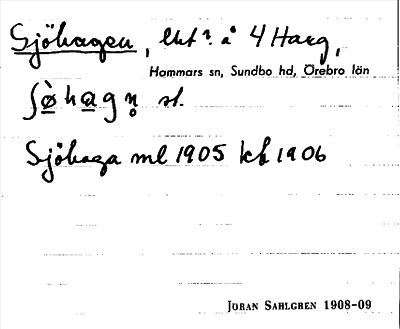 Sjöhagen, lht n. å 4 Harg,
Hammars sn, Sundbo hd, Örebro län
ʃø̀hagn̥ st.
Sjöhaga ml 1905 kk 1906
JÖRAN SAHLGREN 1908-09